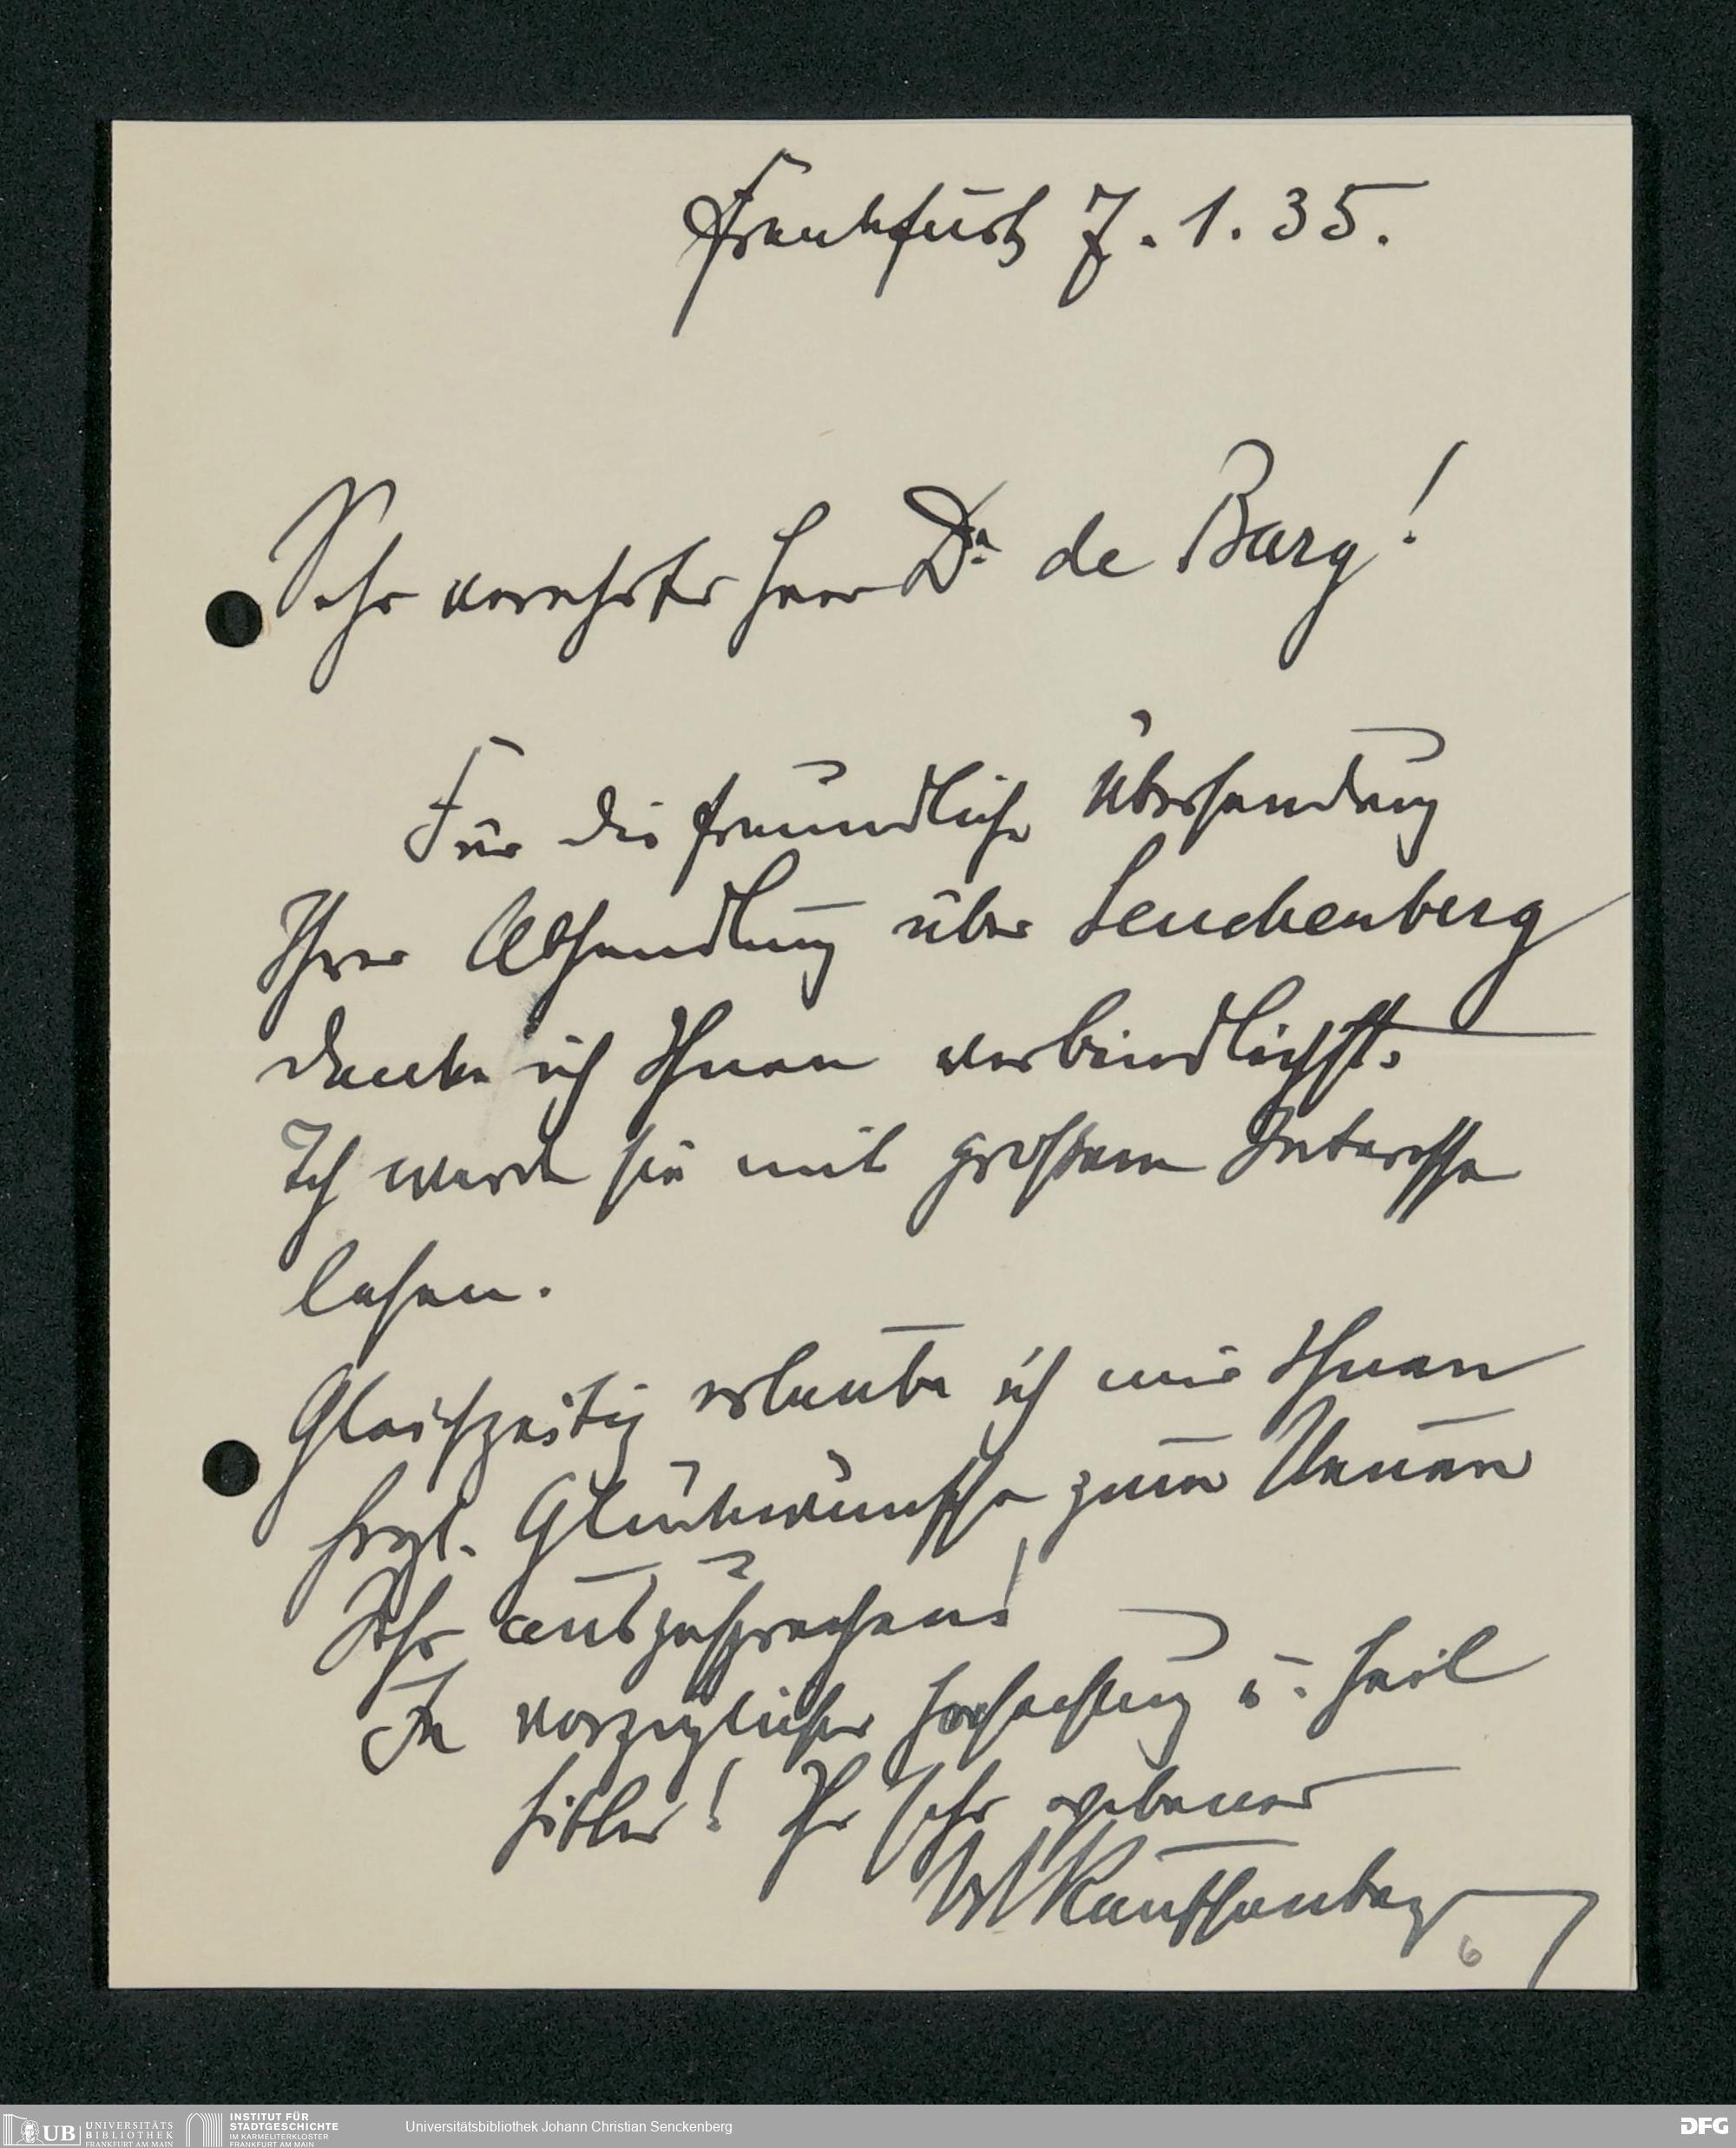 Frankfurt 7.1.35.
Sehr verehrter Herr Dr. de Bary!
Für die freundliche Übersendung
Ihrer Abhandlung über Senckenberg
danke ich Ihnen verbindlichst.
Ich werde sie mit großem Interesse
lesen.
Gleichzeitig erlaube ich mir Ihnen
herzl. Glückwünsche zum Neuen
Jahr auszusprechen!
In vorzüglicher Hochachtung u. Heil
Hitler! Ihr sehr ergebener
6
UB UNIVERSITÄTS BIBLIOTHEK FRANKFURT AM MAIN
INSTITUT FÜR STADTGESCHICHTE IM KARMELITERKLOSTER FRANKFURT AM MAIN
Universitätsbibliothek Johann Christian Senckenberg
DFG